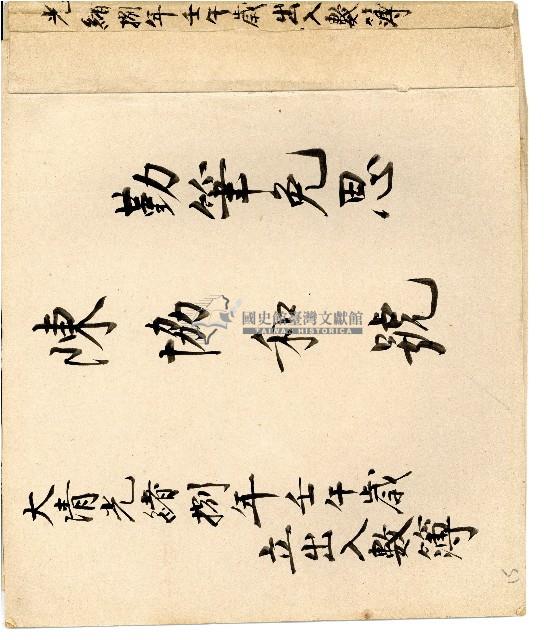 光緒捌年壬午歲出入數簿
勤筆免思
陳協和號
國史館臺灣文獻館
TAIWAN HISTORICA
大清光緒捌年壬午歲
立出入數簿
15